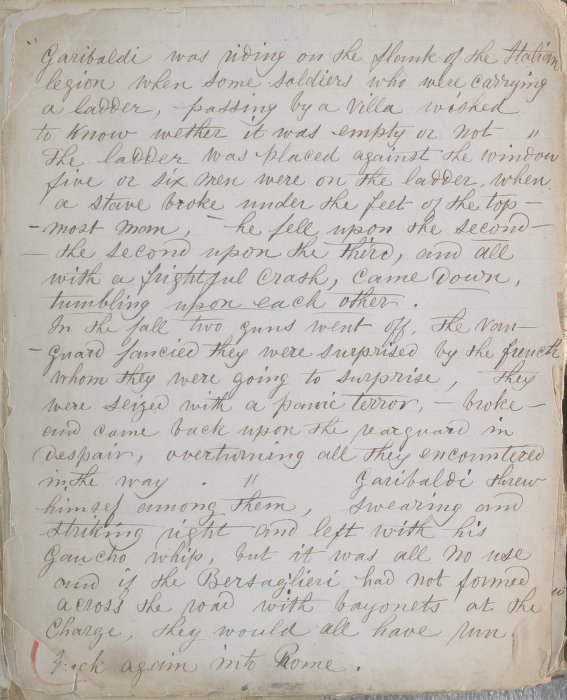 "Garibaldi was riding on the flank of the Italian
legion when some soldiers who were carrying
a ladder, passing by a Villa wished
to know wether it was empty or not "
The ladder was placed against the window
five or six men were on the ladder, when
a stave broke under the feet of the top-
-most man, - he fell upon the second -
- the second upon the third, and all
with a frightful crash, came down,
tumbling upon each other.
In the fall two guns went off, The van-
-guard fancied they were surprised by the french
whom they were going to surprise, They
were seized with a panic terror, - broke -
and came back upon the rearguard in
despair, overturning all they encountered
in the way . " Garibaldi threw
himself among them, swearing and
striking right and left with his
Gaucho whip, but it was all no use
and if the Bersaglieri had not formed
across the road with bayonets at the
Charge, they would all have run
back again into Rome.